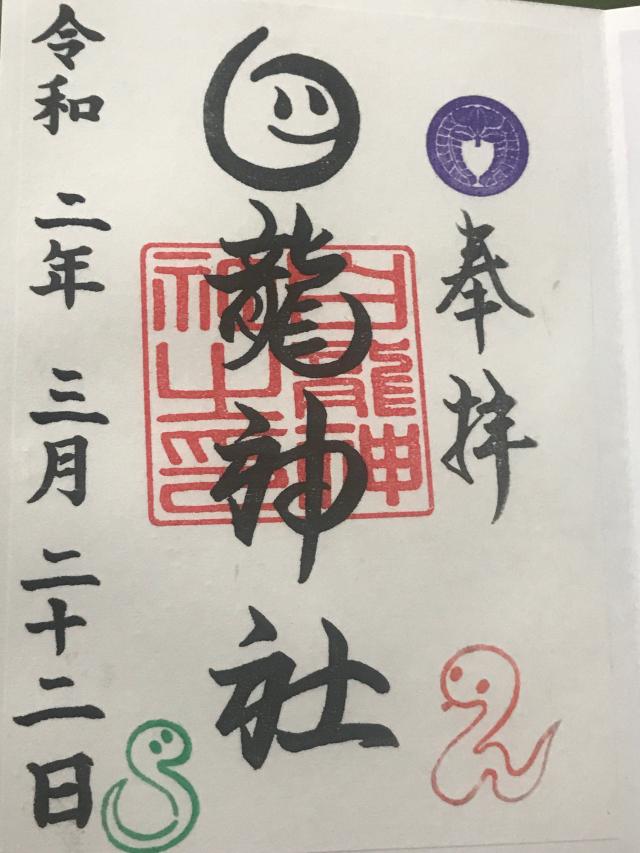 奉拝
白龍神社
白龍神
社之印
令和 二年 三月 二十二日